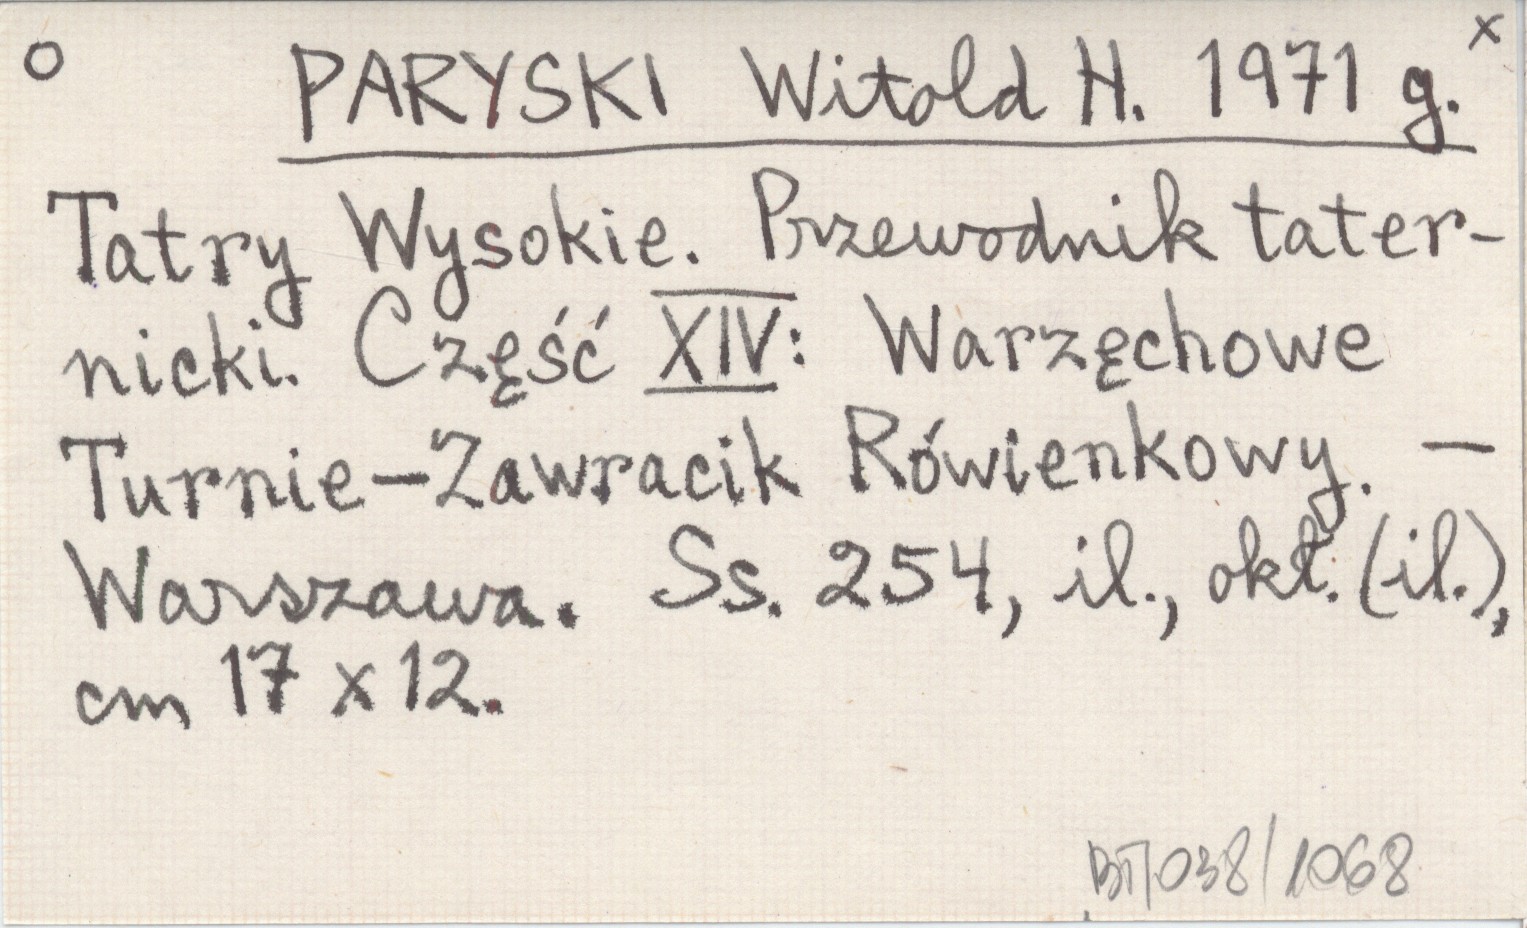 o PARYSKI Witold H. 1971 g. x
Tatry Wysokie. Przewodnik tater-
nicki. Część XIV: Warzęchowe
Turnie-Zawracik Rówienkowy. —
Warszawa. Ss. 254, il., okł. (il.),
cm 17 x 12.
038/1068